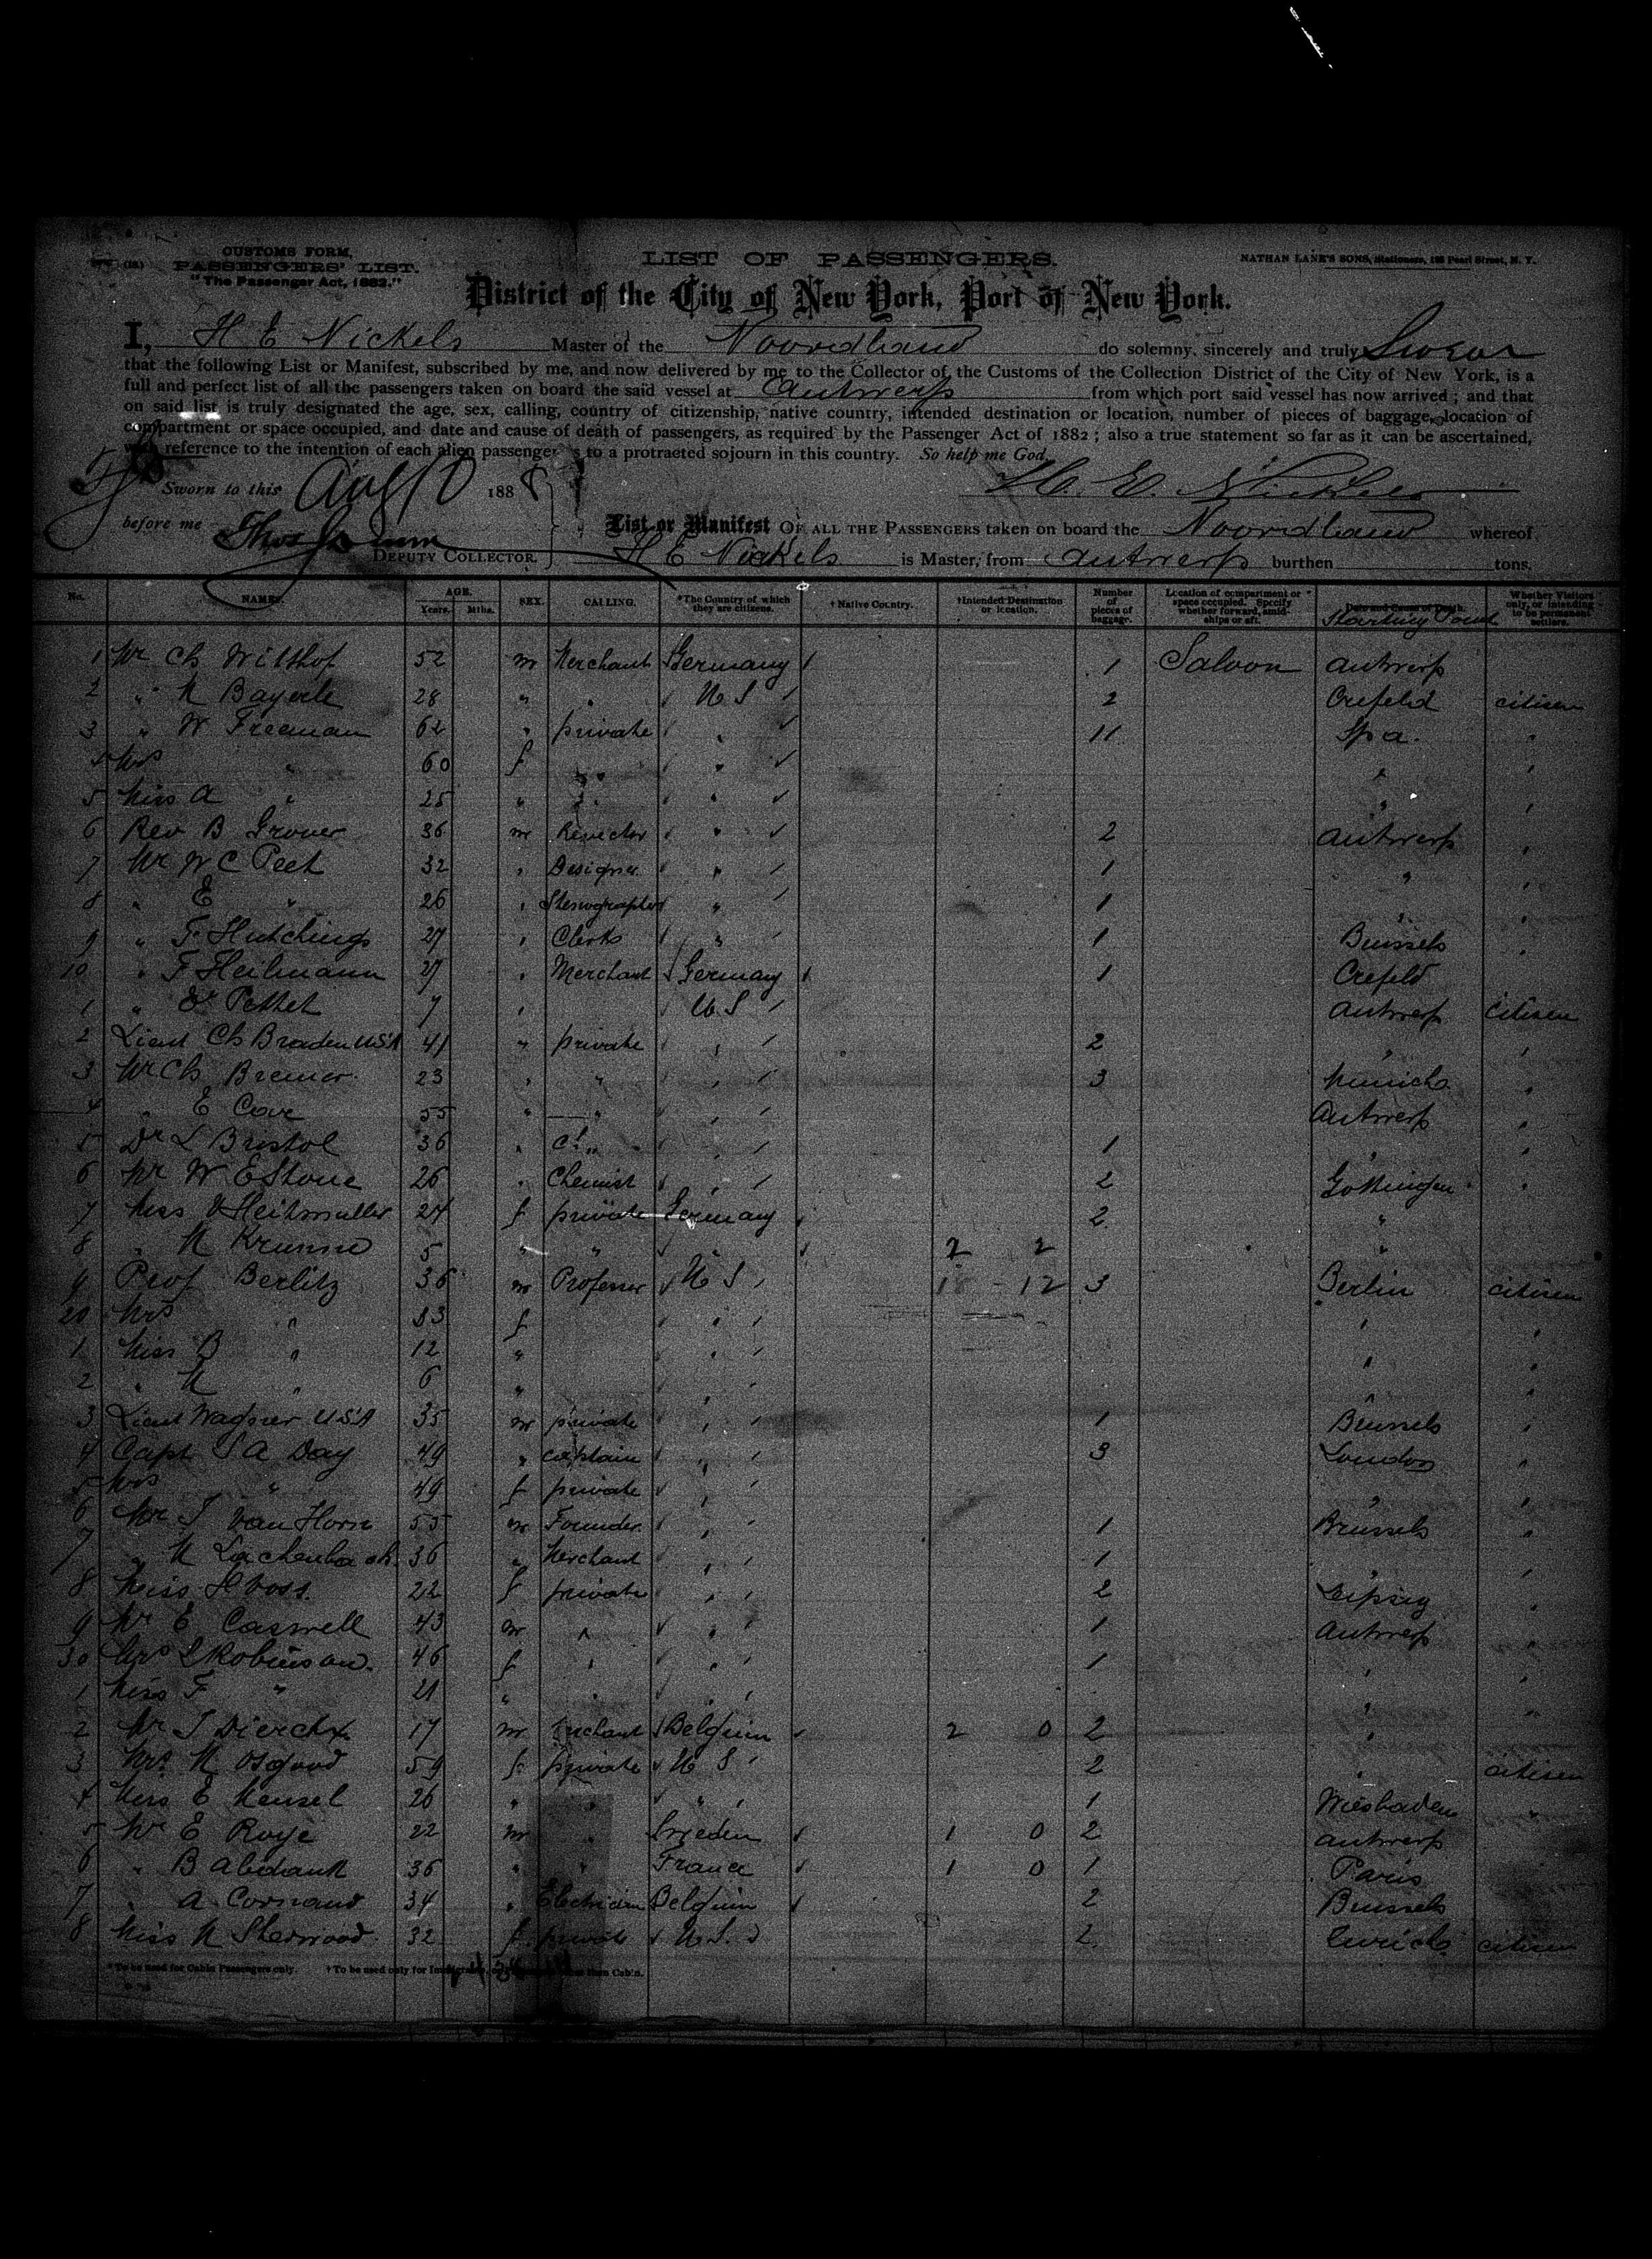 CUSTOMS FORM,
PASSENGERS' LIST.
"The Passenger Act, 1882."
LIST OF PASSENGERS.
NATHAN LANE'S SONS, Stationers, Pearl Street, N. Y.
District of the City of New York, Port of New York.
I, H E Nickels Master of the Noordland do solemny, sincerely and truly Swear
that the following List or Manifest, subscribed by me, and now delivered by me to the Collector of the Customs of the Collection District of the City of New York, is a
full and perfect list of all the passengers taken on board the said vessel at Antwerp from which port said vessel has now arrived ; and that
on said list is truly designated the age, sex, calling, country of citizenship, native country, intended destination or location, number of pieces of baggage, location of
compartment or space occupied, and date and cause of death of passengers, as required by the Passenger Act of 1882 ; also a true statement so far as it can be ascertained,
with reference to the intention of each alien passenger s to a protracted sojourn in this country. So help me God.
Sworn to this Aug 10 1888
H. E. Nickels
before me
List or Manifest OF ALL THE PASSENGERS taken on board the Noordland whereof
DEPUTY COLLECTOR. H E Nickels is Master, from Antwerp burthen tons.
No. NAMES. AGE. Years. Mths. SEX. CALLING. *The Country of which they are citizens. † Native Country. †Intended Destination or location. Number of pieces of baggage. Location of compartment or space occupied. Specify whether forward, amidships or aft. Date and Cause of Death. Starting Point Whether Visitors only, or intending to be permanent settlers.
1 Mr Ch Wilthof 52 m Merchant Germany 1 Saloon Antwerp
2 " M Bayerle 28 " " U S 2 Crefeld citizen
3 " W Freeman 62 " private " 11 Spa. "
4 Mrs " 60 f " " " "
5 Miss A " 25 " " " " "
6 Rev B Grover 36 m " 2 Antwerp "
7 Mr W C Peet 32 " Designer " 1 " "
8 " E " 26 " Stenographer " 1 " "
9 " F. Hutchings 27 " Clerk " 1 Brussels "
10 " F Heilmann 27 " Merchant Germany 1 Crefeld
1 " Pettet 7 " U S Antwerp Citizen
2 Lieut Ch Braden USA 41 " private " 2 " "
3 Mr Ch Bremer 23 " " " 3 Munich "
4 " E Cove 55 " " " Antwerp "
5 Dr L Bristol 36 " " 1 " "
6 Mr W E Stone 26 " Chemist " 2 Gottingen "
7 Miss V Heitmuller 24 f private Germany 2 "
8 " M Krumm 5 " " " 2 2 "
9 Prof Berlitz 36 m Professor U S 18 - 12 3 Berlin citizen
20 Mrs " 33 f " " "
1 Miss B " 12 " " " "
2 " M " 6 " "
3 Lieut Wagner USA 35 m private " 1 Brussels "
4 Capt S A Day 49 " captain " 3 London "
5 Mrs " 49 f private " " "
6 Mr J Van Horn 55 m Founder " 1 Brussels "
7 " M Lachenbach 36 " Merchant " 1 " "
8 Miss H Voss. 22 f private " 2 Leipzig "
9 Mr E Caswell 43 m " " 1 Antwerp "
30 Mrs L Robinson. 46 f " " 1 " "
1 Miss F " 21 " " " " "
2 Mr J Dierckx 17 m Merchant Belgium 2 0 2 "
3 Mrs M Osgood 59 f private U S 2 " citizen
4 Miss E Mensel 26 " " " 1 Wiesbaden "
5 Mr E Roye 22 m " Sweden 1 0 2 Antwerp
6 " B 36 " " France 1 0 1 Paris
7 " A Cornand 34 " Electrician Belgium 2 Brussels
8 Miss M Sherwood 32 f private U. S. 2 Zurich citizen
* To be used for Cabin Passengers only. † To be used only for than Cabin.